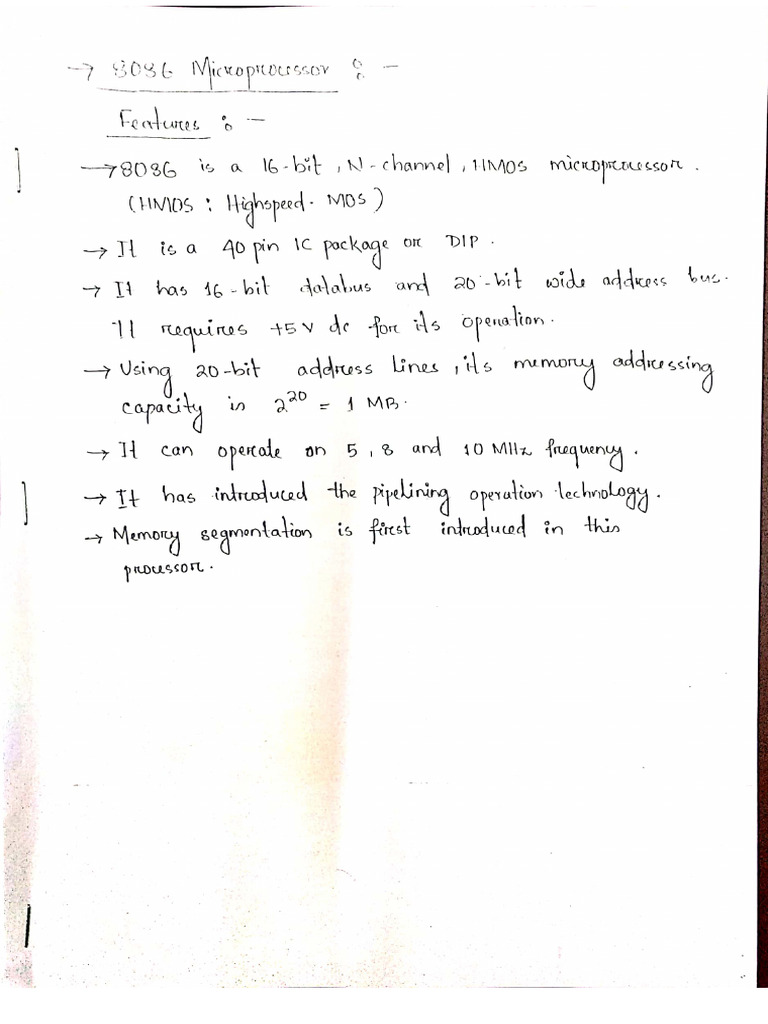 → 8086 Microprocessor :-
Features :-
→ 8086 is a 16-bit, N-channel, HMOS microprocessor.
(HMOS : Highspeed - MOS)
→ It is a 40 pin IC package or DIP.
→ It has 16-bit databus and 20-bit wide address bus.
It requires +5V dc for its operation.
→ Using 20-bit address lines, its memory addressing
capacity is 2²⁰ = 1 MB.
→ It can operate on 5, 8 and 10 MHz frequency.
→ It has introduced the pipelining operation technology.
→ Memory segmentation is first introduced in this
processor.